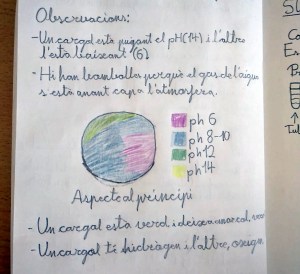 Observacions:
- Un cargol està pujant el pH(14) i l'altre
l'està baixant (6)
- Hi han bombolles perquè el gas de l'aigua
s'està anant cap a l'atmosfera.
ph 6
ph 8-10
ph 12
ph 14
Aspecte al principi
- Un cargol està verd i deixa anar
- Un cargol té hidrògen i l'altre, oxigen